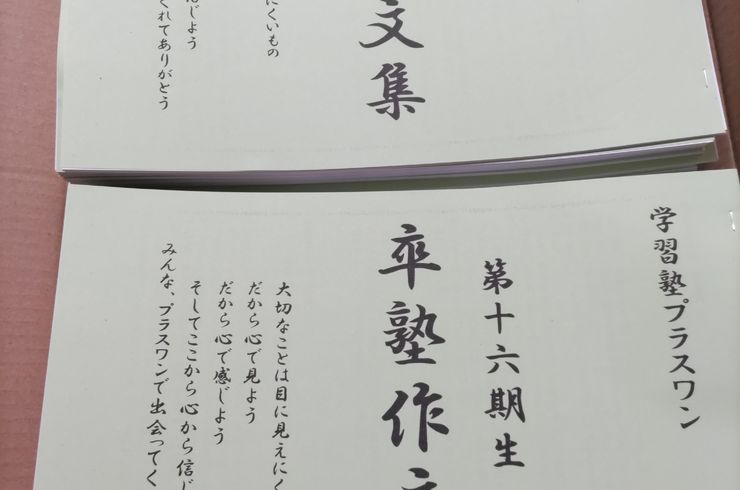 文集
にくいもの
じよう
くれてありがとう
学習塾プラスワン
第十六期生
卒塾作
大切なことは目に見えにく
だから心で見よう
だから心で感じよう
そしてここから心から信じ
みんな、プラスワンで出会ってく